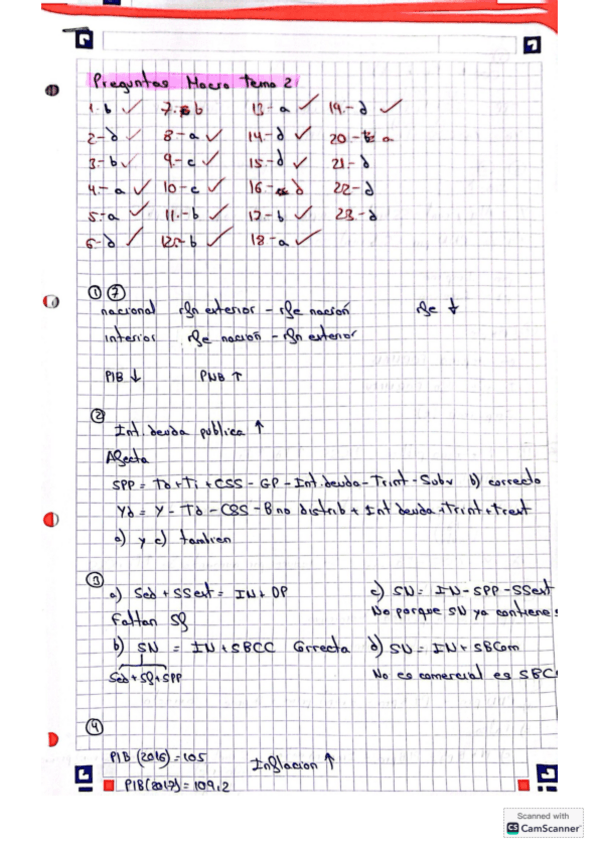 Preguntas Macro Tema 2
1.- b ✓ 7.- b 13 - a ✓ 19.- d ✓
2 - d ✓ 8 - a ✓ 14.- d ✓ 20.- a
3.- b ✓ 9.- c ✓ 15.- d ✓ 21.- d
4.- a ✓ 10 - c ✓ 16.- d 22 - d
5.- a ✓ 11.- b ✓ 17.- b ✓ 23.- d
6.- d ✓ 12.- b ✓ 18.- a ✓
① ⑦
nacional rfn exterior - rfe nación rfe ↓
interior rfe nación - rfn exterior
PIB ↓ PNB ↑
②
Int. deuda publica ↑
Afecta
SPP = Td + Ti + CSS - GP - Int.deuda - Trint - Subv b) correcto
Yd = Y - Td - CSS - B no distrib + Int deuda + Trint + Trext
a) y c) tambien
③
a) Sed + SSext = IN + DP c) SN = IN - SPP - SSext
Faltan Sf No porque SN ya contiene
b) SN = IN + SBCC Correcta d) SN = IN + SBCom
Sed + Sf + SPP No es comercial es SBC
④
PIB (2016) = 105 Inflacion ↑
PIB (2017) = 109,2
Scanned with
CS CamScanner